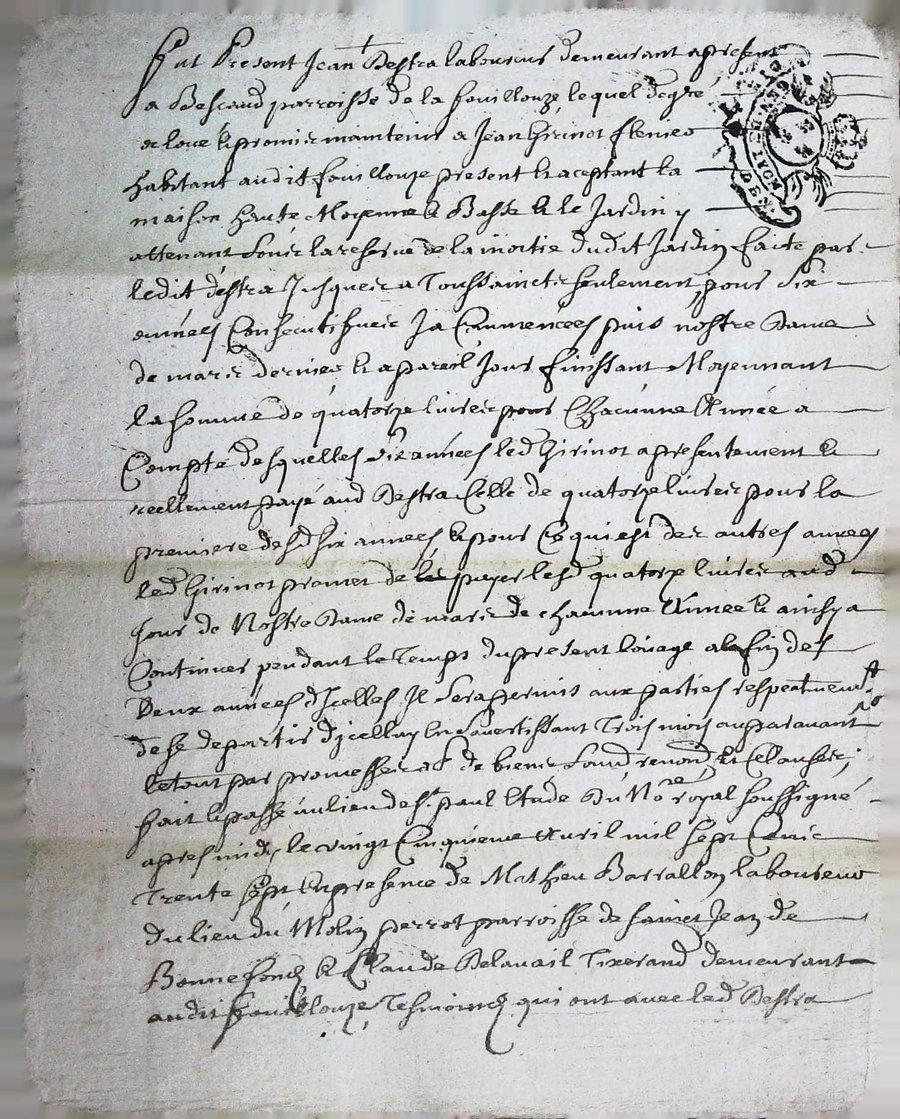 Fut Present Jean Destra laboureur demeurant apresent
a Bescaud parroisse de la fouillouze, lequel de gré
a loué & promis maintenir a Jean Girinot
habitant audit fouillouze present & aceptant la
maison haute Moyenne & Basse & le Jardin y
attenant sous la reserve de la moitié dudit Jardin faite par
ledit destra Jusques a Toussaincts seulement, pour Six
années Consecutifves Ja Commencées puis nostre Dame
de mars dernier & a pareil Jour finissant Moyennant
la somme de quatorze livres pour Chacunne Année a
Compte desquelles six années led Girinot apresentement &
reellement payé aud Destra Celle de quatorze livres pour la
premiere desd six années & pour Ce qui est des autres années
led Girinot promet de les payer lesd quatorze livres aud
Jour de Nostre Dame de mars de chacunne Année & ainsy a
Continuer pendant le Temps du present louage a la fin des
Deux années d'Icelles Il sera permis aux parties respectmeut
de se departir d'jcelluy En s'avertissant Trois mois auparavant
le tout par promesses de biens soud renond & Clauses;
fait & passé au lieu de St paul Etude Du Nore royal soussigné
apres midy le vingt Cinquieme Avril mil sept Cens
Trente sept En presence de Mathieu Barrallon laboureur
du lieu du Molin perrot parroisse de sainct Jean de
Bonnefond & Claude Delavail Tixerand demeurant
audit fouillouze Tesmoins qui ont avec led Destra